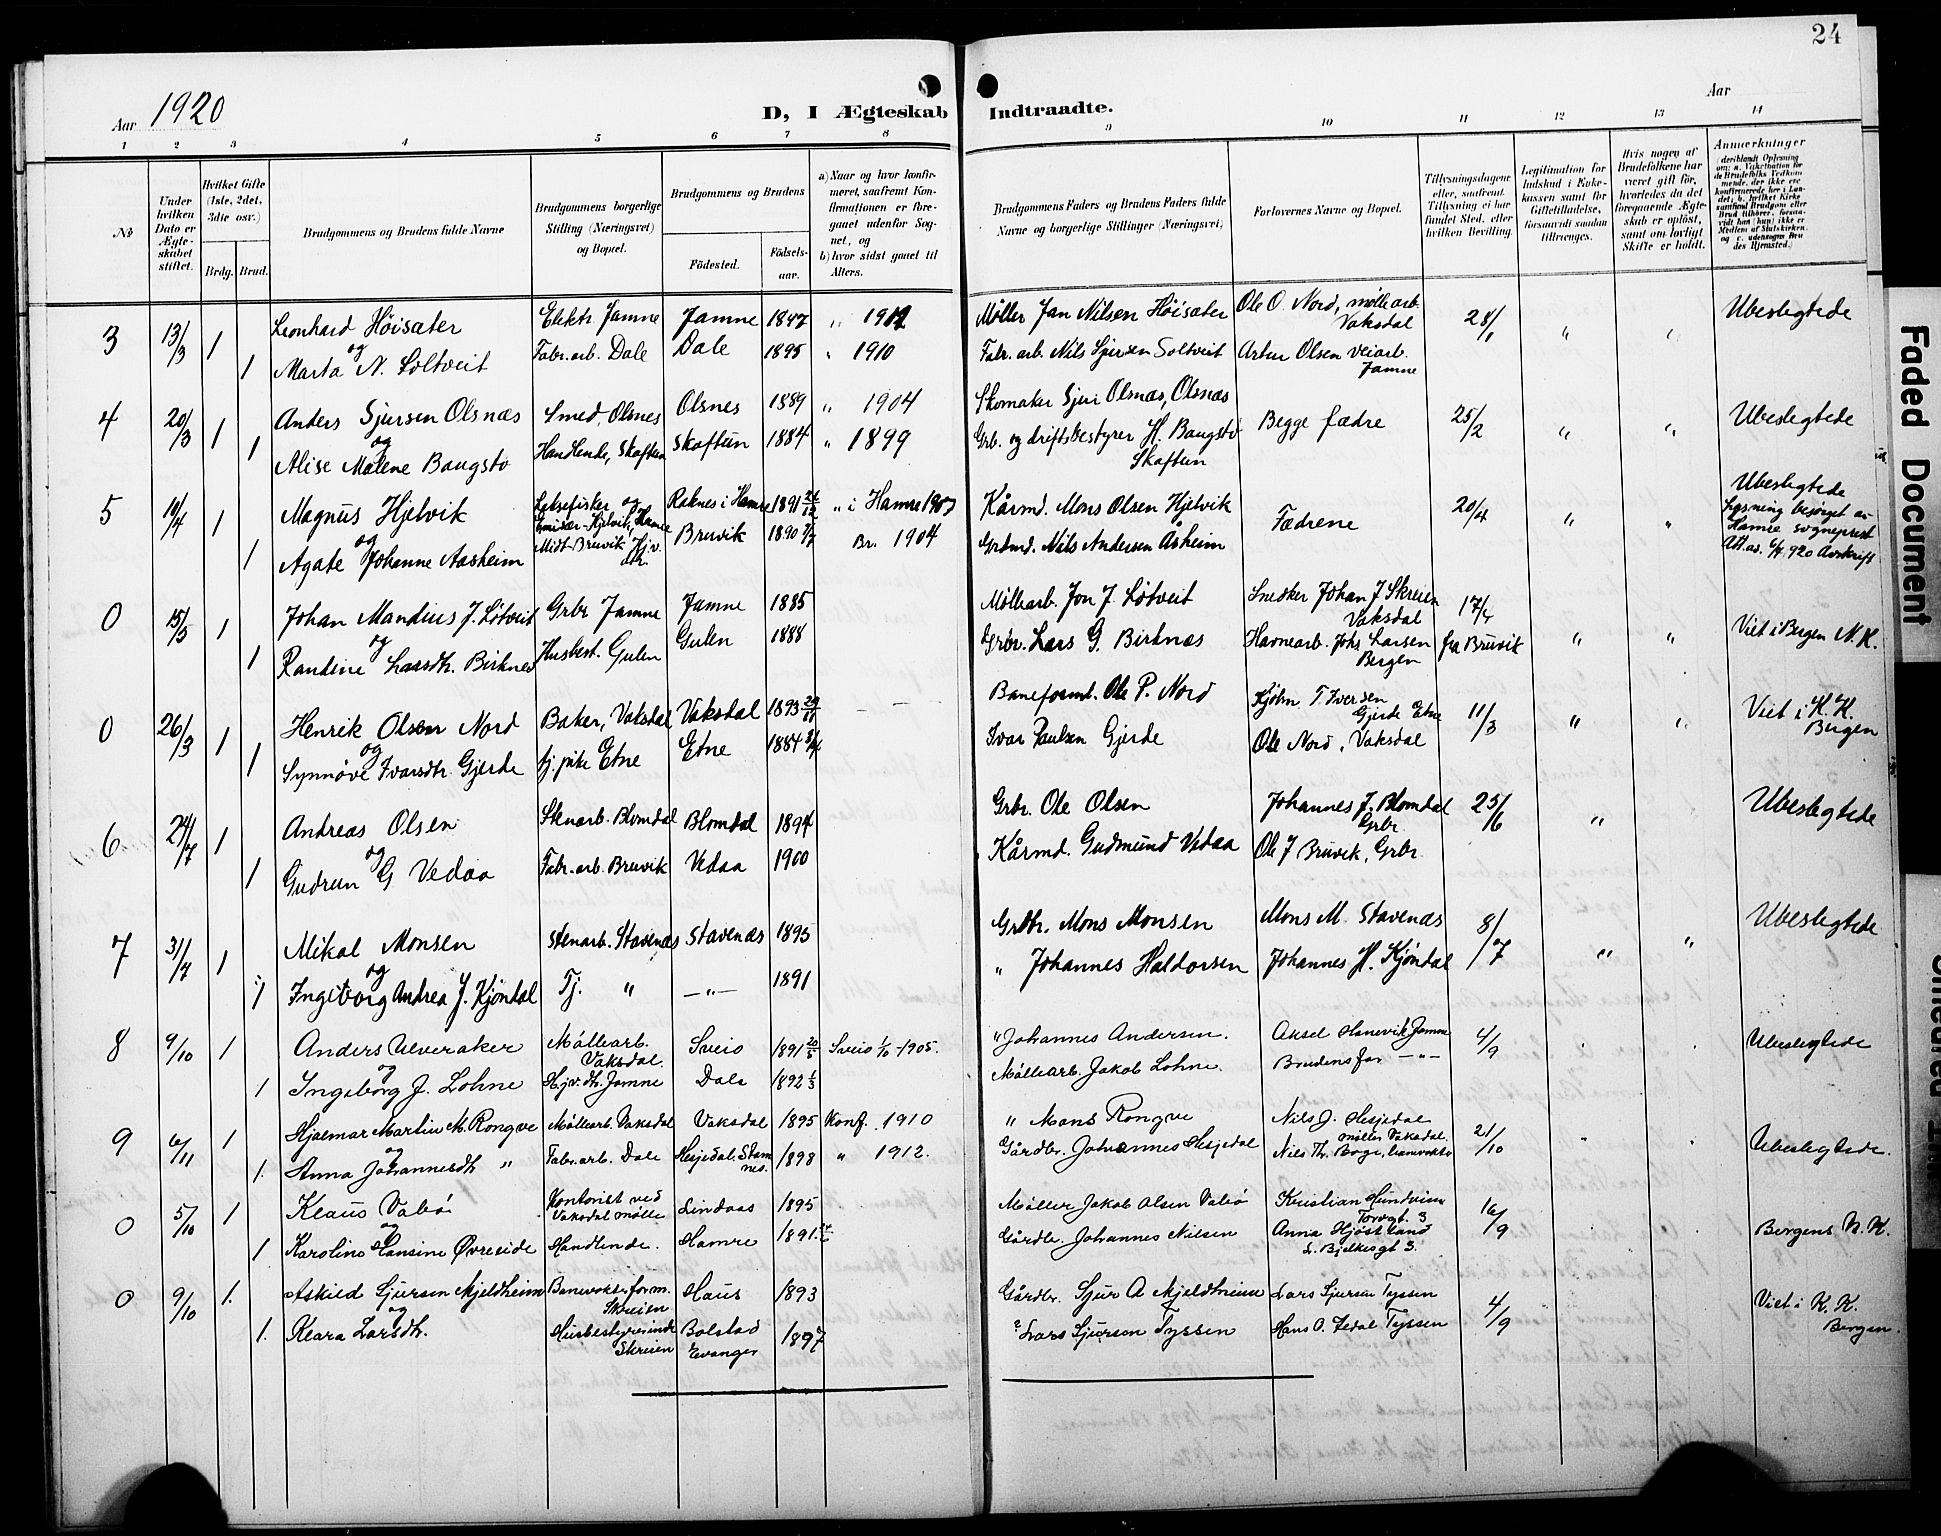 24
Aar 1920
D, I Ægteskab Indtraadte.
Aar
1 2 3 4 5 6 7 8 9 10 11 12 13 14
No
Under hvilken Dato er Ægteskabet stiftet.
Hvilket Gifte (1ste, 2det, 3die osv.)
Brdg. Brud.
Brudgommens og Brudens fulde Navne
Brudgommens borgerlige Stilling (Næringsvei) og Bopæl.
Brudgommens og Brudens
Födested. Födselsaar.
a) Naar og hvor konfirmeret, saafremt Konfirmationen er foregaaet udenfor Sognet, og
b) hvor sidst gaaet til Alters.
Brudgommens Faders og Brudens Faders fulde Navne og borgerlige Stillinger (Næringsvei)
Forlovernes Navne og Bopæl.
Tillysningsdagene eller, saafremt Tillysning ei har fundet Sted, efter hvilken Bevilling.
Legitimation for Indskud i Enkekassen samt for Giftetilladelse, forsaavidt saadan tiltrænges.
Hvis nogen af Brudefolkene har været gift för, hvorledes da det foregaaende Ægteskab er oplöst, samt om lovligt Skifte er holdt.
Anmærkninger
3 13/3 1 Leonhard Höisæter Elektr Jamne Jamne 1847 " 1912 Møller Jan Nilsen Höisæter Ole O. Nord, möllearb. Vaksdal 28/1 " " Ubeslegtede
og
1 Marta N. Soltveit Fabr.arb. Dale Dale 1895 " 1910 Fabr. arb. Nils Sjursen Soltveit Artur Olsen veiarb. Jamne
4 20/3 1 Anders Sjursen Olsnæs Smed, Olsnes Olsnes 1889 " 1904 Skomaker Sjur Olsnæs, Olsnæs Begge fædre 25/2 " " Ubeslegtede
og
1 Alise Malene Baugsto Handlende, Skaftun Skaftun 1884 " 1899 Grb. og driftsbestyrer H. Baugsto Skaftun
5 10/4 1 Magnus Hjelvik Laksefisker og Emisær Hjelvik, Hamre Raknes i Hamre 1891 " i Hamre 1907 Kårmd. Mons Olsen Hjelvik Fædrene 20/4 " " Ubeslegtede
Lysning besörget av Hamre sogneprest Att. av. 6/4 920 Avskrift
og
1 Agate Johanne Aasheim Midt-Bruvik Hjv. dtr. Bruvik 1890 Br. 1904 Grdmd. Nils Andersen Åsheim
0 15/5 1 Johan Mandius J. Lötveit Grbr Jamne Jamne 1885 Møllearb. Jon J. Lötveit Snedker Johan J Skreien Vaksdal 17/4 fra Bruvik " " Viet i Bergen N. K.
og
1 Randine Larsdtr. Birknes Husbest. Gulen Gulen 1888 Grbr. Lars G. Birknæs Havnearb. Johs Larsen Bergen
0 26/3 1 Henrik Olsen Nord Baker, Vaksdal Vaksdal 1893 — Baneformd. Ole P. Nord Kjøbm. T. Iversen Gjerde Etne 11/3 " " Viet i K. K. Bergen
og
1 Synnöve Ivarsdtr. Gjerde tj. pike Etne Etne 1884 Ivar Paulsen Gjerde Ole Nord, Vaksdal
6 24/7 1 Andreas Olsen Stenarb. Blomdal Blomdal 1894 Grbr. Ole Olsen Johannes J. Blomdal Grbr 25/6 " Ubeslegtede
og
1 Gudrun G Vedaa Fabr. arb. Bruvik Vedaa 1900 Kårmd. Gudmund Vedaa Ole J Bruvik, Grbr.
7 31/7 1 Mikal Monsen Stenarb. Stavenæs Stavenæs 1895 Grbr. Mons Monsen Mons M. Stavenæs 8/7 " " Ubeslegtede
og
1 Ingeborg Andrea J. Kjöndal Tj. " — " — 1891 " Johannes Haldorsen Johannes H. Kjöndal
8 9/10 1 Anders Ulveraker Møllearb. Vaksdal. Sveio 1891 20/5 Sveio 1/10 - 1905. " Johannes Andersen. Aksel Hanevik Jamne 4/9 Ubeslegtede
og
1 Ingeborg J. Lohne Hjv. dtr. Jamne Dale 1892 Møllearb. Jakob Lohne. Brudens far — " —
9 6/11 1 Hjalmar Martin M. Rongve Møllearb. Vaksdal Vaksdal 1895 Konf. 1910 " Mons Rongve Nils J. Hesjedal møller Vaksdal. 21/10 Ubeslegtede.
og
1. Anna Johannesdtr " Fabr. arb. Dale Hesjedal, Stamnes. 1898 " 1912. Gårdbr. Johannes Hesjedal Nils Th. Boge, banevokter
0 5/10 1 Klaus Vabö Kontorist ved Vaksdal mølle Lindaas 1895 Møller Jakob Olsen Vabö Kristian Hundvin Torvgt. 3 16/9 Bergens N. K.
og
1 Karoline Hansine Øvreeide Handlende. Hamre 1891 Gårdbr. Johannes Nilsen Anna Hjöstland L. Bjelkesgt 3.
0 9/10 1. Askild Sjursen Mjeldheim Banevokterform. Skreien Haus 1893 Gårdbr. Sjur A Mjeldheim Lars Sjursen Tyssen 4/9 Viet i K. K. Bergen.
og
1. Klara Larsdtr. Husbestyrerinde Skreien Bolstad Evanger 1897 Lars Sjursen Tyssen Hans O. Tyssen
Faded Document